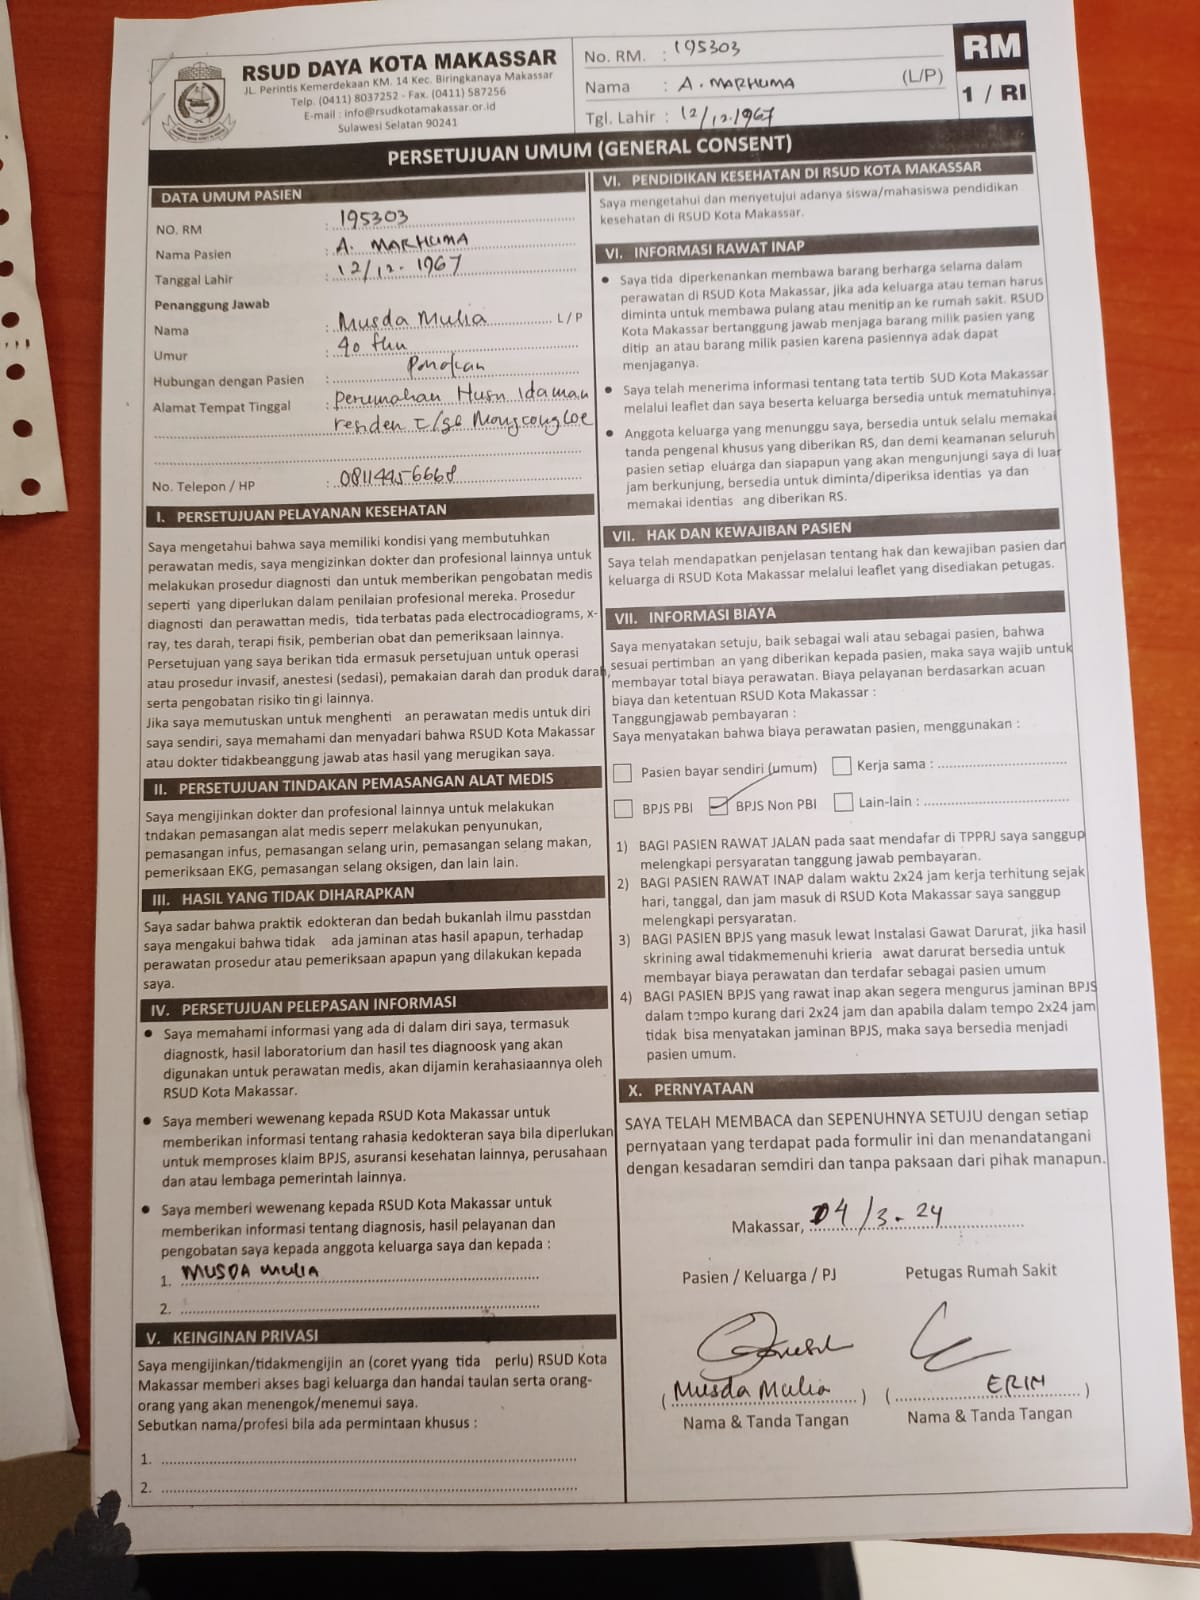 RSUD DAYA KOTA MAKASSAR
JL. Perintis Kemerdekaan KM. 14 Kec. Biringkanaya Makassar
Telp. (0411) 8037252 - Fax. (0411) 587256
E-mail : info@rsudkotamakassar.or.id
Sulawesi Selatan 90241
No. RM. : 195303
Nama : A. MARHUMA (L/P)
Tgl. Lahir : 12/12.1967
RM
1 / RI
PERSETUJUAN UMUM (GENERAL CONSENT)
DATA UMUM PASIEN
NO. RM : 195303
Nama Pasien : A. MARHUMA
Tanggal Lahir : 12/12.1967
Penanggung Jawab
Nama : Musda Mulia L/P
Umur : 40 thn
Hubungan dengan Pasien : Ponakan
Alamat Tempat Tinggal : Perumahan Husn Idaman
residen Mongcongloe
No. Telepon / HP : 08114456668
I. PERSETUJUAN PELAYANAN KESEHATAN
Saya mengetahui bahwa saya memiliki kondisi yang membutuhkan
perawatan medis, saya mengizinkan dokter dan profesional lainnya untuk
melakukan prosedur diagnosti dan untuk memberikan pengobatan medis
seperti yang diperlukan dalam penilaian profesional mereka. Prosedur
diagnosti dan perawattan medis, tida terbatas pada electrocadiograms, x-
ray, tes darah, terapi fisik, pemberian obat dan pemeriksaan lainnya.
Persetujuan yang saya berikan tida ermasuk persetujuan untuk operasi
atau prosedur invasif, anestesi (sedasi), pemakaian darah dan produk darah,
serta pengobatan risiko tin gi lainnya.
Jika saya memutuskan untuk menghenti an perawatan medis untuk diri
saya sendiri, saya memahami dan menyadari bahwa RSUD Kota Makassar
atau dokter tidakbeanggung jawab atas hasil yang merugikan saya.
II. PERSETUJUAN TINDAKAN PEMASANGAN ALAT MEDIS
Saya mengijinkan dokter dan profesional lainnya untuk melakukan
tndakan pemasangan alat medis seperr melakukan penyunukan,
pemasangan infus, pemasangan selang urin, pemasangan selang makan,
pemeriksaan EKG, pemasangan selang oksigen, dan lain lain.
III. HASIL YANG TIDAK DIHARAPKAN
Saya sadar bahwa praktik edokteran dan bedah bukanlah ilmu passtdan
saya mengakui bahwa tidak ada jaminan atas hasil apapun, terhadap
perawatan prosedur atau pemeriksaan apapun yang dilakukan kepada
saya.
IV. PERSETUJUAN PELEPASAN INFORMASI
• Saya memahami informasi yang ada di dalam diri saya, termasuk
diagnostk, hasil laboratorium dan hasil tes diagnoosk yang akan
digunakan untuk perawatan medis, akan dijamin kerahasiaannya oleh
RSUD Kota Makassar.
• Saya memberi wewenang kepada RSUD Kota Makassar untuk
memberikan informasi tentang rahasia kedokteran saya bila diperlukan
untuk memproses klaim BPJS, asuransi kesehatan lainnya, perusahaan
dan atau lembaga pemerintah lainnya.
• Saya memberi wewenang kepada RSUD Kota Makassar untuk
memberikan informasi tentang diagnosis, hasil pelayanan dan
pengobatan saya kepada anggota keluarga saya dan kepada :
1. MUSDA MULIA
2.
V. KEINGINAN PRIVASI
Saya mengijinkan/tidakmengijin an (coret yyang tida perlu) RSUD Kota
Makassar memberi akses bagi keluarga dan handai taulan serta orang-
orang yang akan menengok/menemui saya.
Sebutkan nama/profesi bila ada permintaan khusus :
1.
2.
VI. PENDIDIKAN KESEHATAN DI RSUD KOTA MAKASSAR
Saya mengetahui dan menyetujui adanya siswa/mahasiswa pendidikan
kesehatan di RSUD Kota Makassar.
VI. INFORMASI RAWAT INAP
• Saya tida diperkenankan membawa barang berharga selama dalam
perawatan di RSUD Kota Makassar, jika ada keluarga atau teman harus
diminta untuk membawa pulang atau menitip an ke rumah sakit. RSUD
Kota Makassar bertanggung jawab menjaga barang milik pasien yang
ditip an atau barang milik pasien karena pasiennya adak dapat
menjaganya.
• Saya telah menerima informasi tentang tata tertib SUD Kota Makassar
melalui leaflet dan saya beserta keluarga bersedia untuk mematuhinya.
• Anggota keluarga yang menunggu saya, bersedia untuk selalu memakai
tanda pengenal khusus yang diberikan RS, dan demi keamanan seluruh
pasien setiap eluárga dan siapapun yang akan mengunjungi saya di luar
jam berkunjung, bersedia untuk diminta/diperiksa identias ya dan
memakai identias ang diberikan RS.
VII. HAK DAN KEWAJIBAN PASIEN
Saya telah mendapatkan penjelasan tentang hak dan kewajiban pasien dan
keluarga di RSUD Kota Makassar melalui leaflet yang disediakan petugas.
VII. INFORMASI BIAYA
Saya menyatakan setuju, baik sebagai wali atau sebagai pasien, bahwa
sesuai pertimban an yang diberikan kepada pasien, maka saya wajib untuk
membayar total biaya perawatan. Biaya pelayanan berdasarkan acuan
biaya dan ketentuan RSUD Kota Makassar :
Tanggungjawab pembayaran :
Saya menyatakan bahwa biaya perawatan pasien, menggunakan :
Pasien bayar sendiri (umum) Kerja sama :
BPJS PBI BPJS Non PBI Lain-lain :
1) BAGI PASIEN RAWAT JALAN pada saat mendafar di TPPRJ saya sanggup
melengkapi persyaratan tanggung jawab pembayaran.
2) BAGI PASIEN RAWAT INAP dalam waktu 2x24 jam kerja terhitung sejak
hari, tanggal, dan jam masuk di RSUD Kota Makassar saya sanggup
melengkapi persyaratan.
3) BAGI PASIEN BPJS yang masuk lewat Instalasi Gawat Darurat, jika hasil
skrining awal tidakmemenuhi krieria awat darurat bersedia untuk
membayar biaya perawatan dan terdafar sebagai pasien umum
4) BAGI PASIEN BPJS yang rawat inap akan segera mengurus jaminan BPJS
dalam tempo kurang dari 2x24 jam dan apabila dalam tempo 2x24 jam
tidak bisa menyatakan jaminan BPJS, maka saya bersedia menjadi
pasien umum.
X. PERNYATAAN
SAYA TELAH MEMBACA dan SEPENUHNYA SETUJU dengan setiap
pernyataan yang terdapat pada formulir ini dan menandatangani
dengan kesadaran semdiri dan tanpa paksaan dari pihak manapun.
Makassar, 04/3-24
Pasien / Keluarga / PJ Petugas Rumah Sakit
( Musda Mulia ) ( ERIN )
Nama & Tanda Tangan Nama & Tanda Tangan